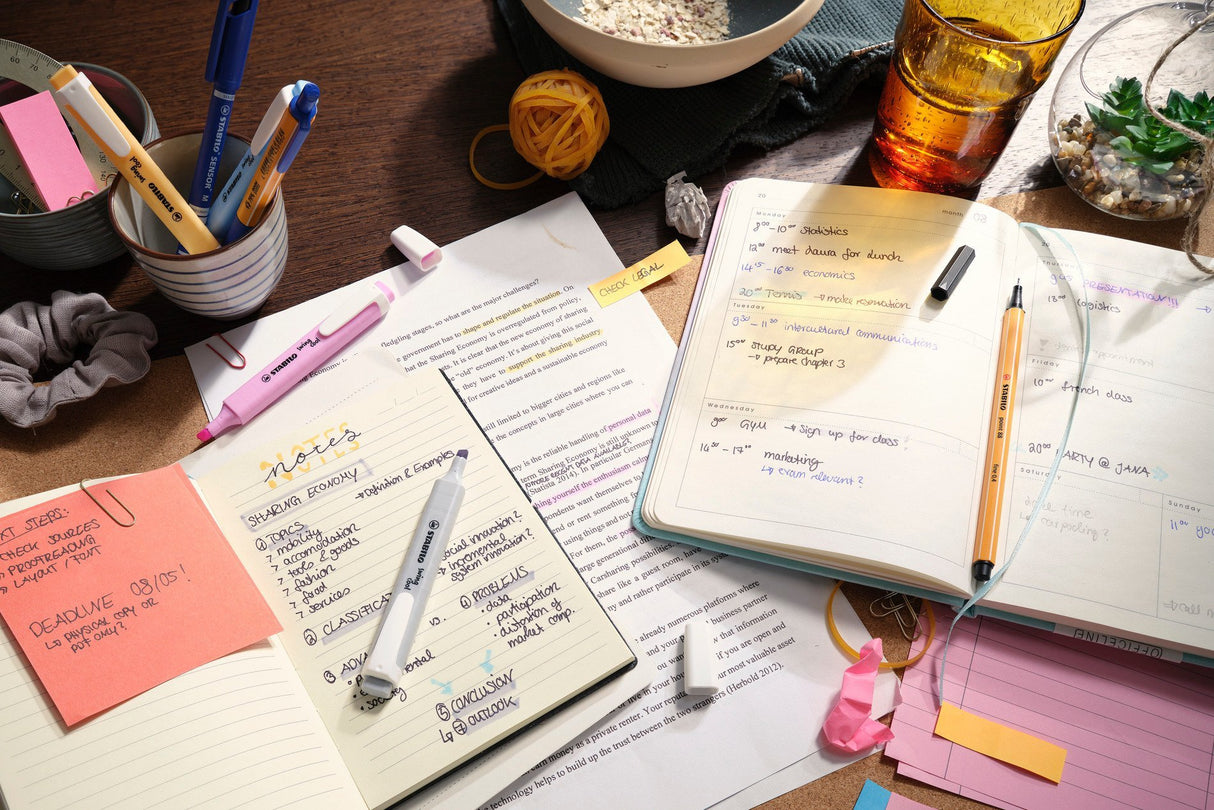 60 70
STABILO swing cool
STABILO SENSOR M
STABILO
CHECK LEGAL
STABILO swing cool
fledgling stages, so what are the major challenges?
government has to shape and regulate the situation. On
the Sharing Economy is overregulated from policy,
It is clear that the new economy of sharing
"old" economy. It's about giving this social
they have to support the sharing industry
for creative ideas and a sustainable economy
still limited to bigger cities and regions like
the concepts in large cities where you can
my is the reliable handling of personal data
term Sharing Economy is still unknown to
MORE RECENT DATA AVAILABLE?
(Statista 2014). In particular Germany
thing yourself the enthusiasm calms
respondents want themselves to
and or rent something for
using things and not
For them, the
large generational
Carsharing possibilities
share like a guest room, have
ty and rather participate in its
already numerous platforms where
and your business partner
that information
if you are open and
or live in your our most valuable asset
as a private renter. Your reputation
to build up the trust between the two strangers (Herbold 2012).
earn money
technology helps
NOTES
notes
SHARING ECONOMY
→ Definition & Examples
① TOPICS
> mobility
> accomodation
> tools & goods
> fashion
> food
> services
② CLASSIFICAT
social innovation?
incremental
vs. system innovation?
③ ADV
mental
society
④ PROBLEMS
• data
• participation
• distortion of
market comp.
⑤ CONCLUSION
↳ ⑦ OUTLOOK
STABILO swing cool
XT STEPS:
CHECK SOURCES
PROOFREADING
LAYOUT / FONT
DEADLINE 08/05!
↳ PHYSICAL COPY OR
PDF ONLY?
20
month 03
Monday
9⁰⁰-10⁰⁰ Statistics
12⁰⁰ meet Laura for lunch
14¹⁵-16⁰⁰ economics
20⁰⁰ Tennis → make reservation
Tuesday
9³⁰-11³⁰ intercultural communications
15⁰⁰ STUDY GROUP
→ prepare chapter 3
Wednesday
9⁰⁰ GYM → sign up for class
14³⁰-17⁰⁰ marketing
↳ exam relevant?
STABILO point 88 fine 0,4
20
Thursday
9⁴⁵ PRESENTATION!!! →
18⁰⁰ Logistics
appointment
Friday
10⁰⁰ french class
20⁰⁰ PARTY @ JANA
Saturday
time
carpooling?
Sunday
11⁰⁰
OFFICELINE